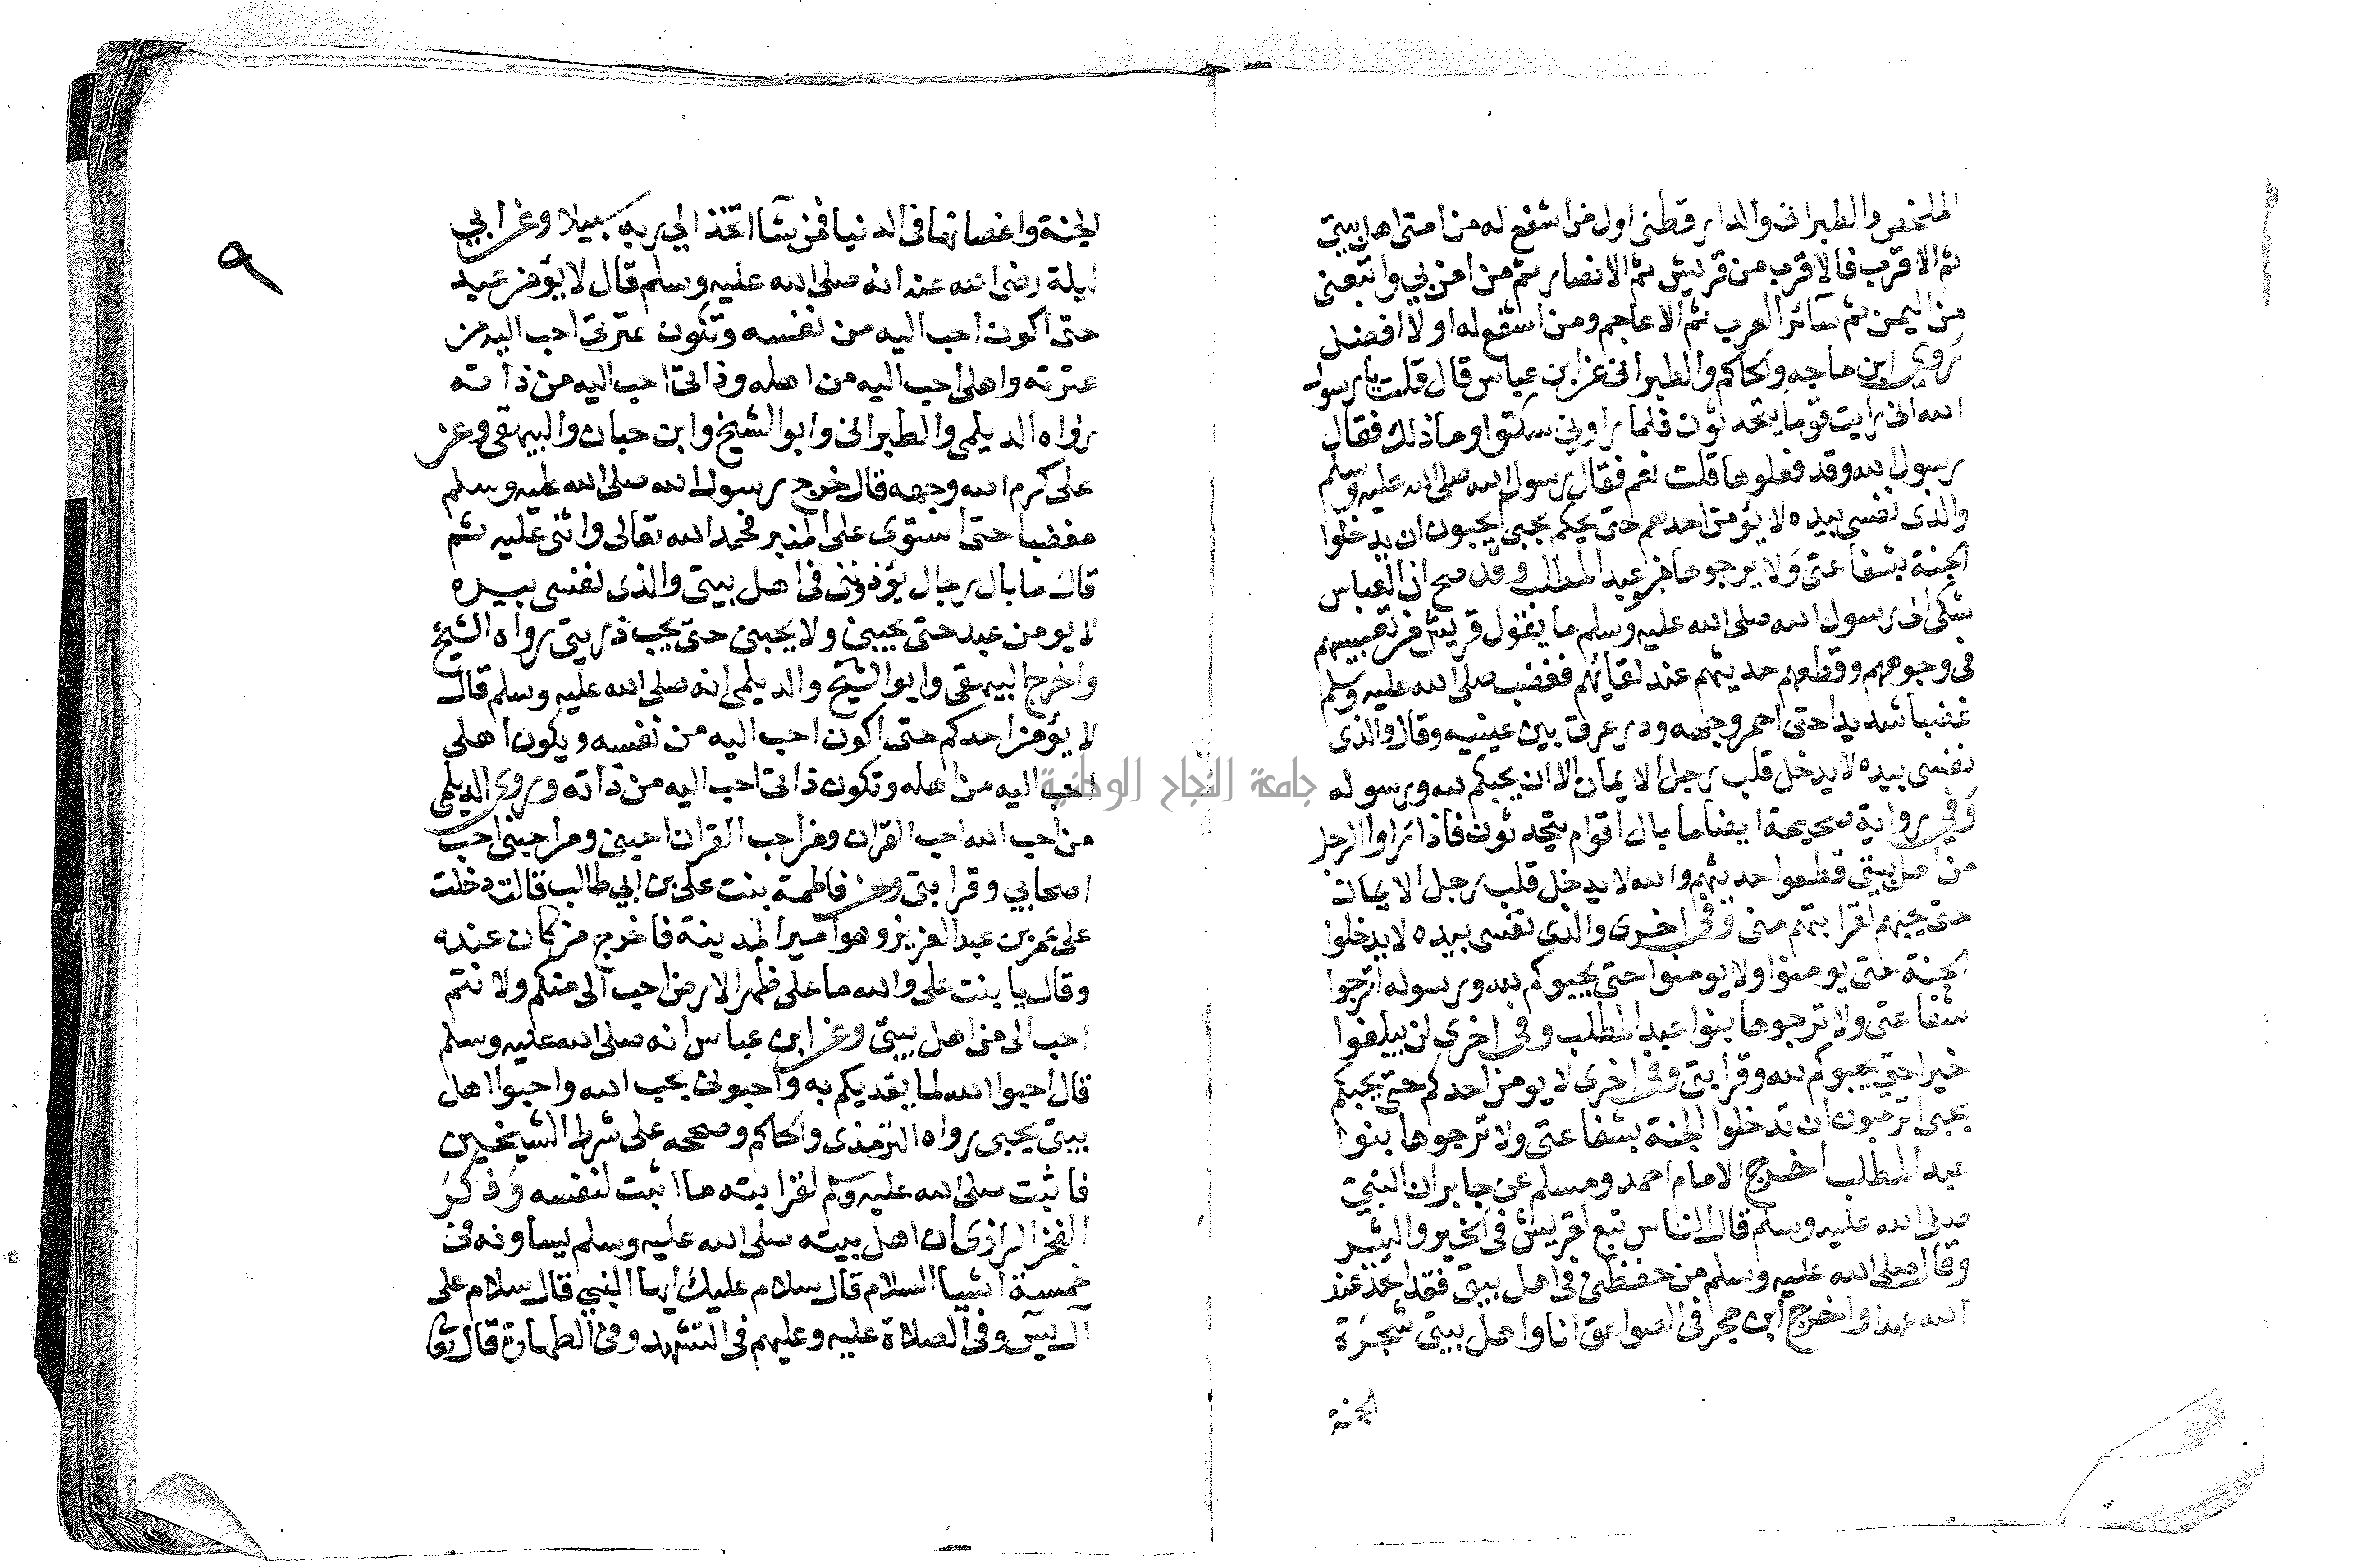 الملخص والطبرانى والدارقطنى اول من اشفع له من امتى اهل بيتى
ثم الاقرب فالاقرب من قريش ثم الانصار ثم من امن بي واتبعنى
من اليمن ثم سآئر العرب ثم الاعاجم ومن اشفع له اولا افضل
روي ابن ماجه والحاكم والطبرانى عن ابن عباس قال قلت يا رسول
الله انى رايت قوما يتحدثون فلما راوني سكتوا وما ذلك فقال
رسول الله وقد فعلوها قلت نعم فقال رسول الله صلى الله عليه وسلم
والذى نفسى بيده لا يؤمن احدهم حتى يحبكم بحبي ايحبون ان يدخلوا
الجنة بشفاعتى ولا يرجوها بنو عبد المطلب وقد صح ان العباس
شكى الى رسول الله صلى الله عليه وسلم ما يفعل قريش من تعبيسهم
فى وجوههم وقطعهم حديثهم عند لقائهم فغضب صلى الله عليه وسلم
غضبا شديدا حتى احمر وجهه ودر عرق بين عينيه وقال والذى
نفسى بيده لا يدخل قلب رجل الايمان الا ان يحبكم لله ورسوله
وفي رواية صحيحة ايضا ما بال اقوام يتحدثون فاذا راوا الرجل
من اهل بيتى قطعوا حديثهم والله لا يدخل قلب رجل الايمان
حتى يحبهم لقرابتهم منى وفى اخرى والذى نفسى بيده لا يدخلوا
الجنة حتى يومنوا ولا يومنوا حتى يحبوكم لله ورسوله اترجوا
شفاعتى ولا ترجوها بنوا عبد المطلب وفى اخرى لن يبلغوا
خيرا حتى يحبوكم لله وقرابتى وفى اخرى لا يومن احدكم حتى يحبكم
بحبى اترجون ان تدخلوا الجنة بشفاعتى ولا ترجوها بنوا
عبد المطلب اخرج الامام احمد ومسلم عن جابر ان النبى
صلى الله عليه وسلم قال الناس تبع لقريش فى الخير والشر
وقال صلى الله عليه وسلم من حفظنى فى اهل بيتى فقد اتخذ عند
الله عهدا واخرج ابن حجر فى الصواعق انا واهل بيتى شجرة
الجنة
٩
الجنة واغصانها فى الدنيا فمن شآ اتخذ الى ربه سبيلا وعن ابي
ليلة رضى الله عنه انه صلى الله عليه وسلم قال لا يؤمن عبد
حتى اكون احب اليه من نفسه وتكون عترتى احب اليه من
عترته واهلى احب اليه من اهله وذاتى احب اليه من ذاته
رواه الديلمى والطبرانى وابو الشيخ وابن حبان والبيهقى وعن
على كرم الله وجهه قال خرج رسول الله صلى الله عليه وسلم
مغضبا حتى استوى على المنبر فحمد الله تعالى واثنى عليه ثم
قال ما بال رجال يؤذننى فى اهل بيتى والذى نفسى بيده
لا يومن عبد حتى يحبنى ولا يحبنى حتى يحب ذريتى رواه الشيخ
واخرج البيهقى وابو الشيخ والديلمى انه صلى الله عليه وسلم قال
لا يؤمن احدكم حتى اكون احب اليه من نفسه ويكون اهلى
احب اليه من اهله وتكون ذاتى احب اليه من ذاته وروى الديلمى
من احب الله احب القران ومن احب القران احبنى ومن احبنى احب
اصحابي وقرابتى وعن فاطمة بنت على بن ابي طالب قالت دخلت
على عمر بن عبد العزيز وهو امير المدينة فاخرج من كان عنده
وقال يا بنت على والله ما على ظهر الارض احب الى منكم ولانتم
احب الى من اهل بيتى وعن ابن عباس انه صلى الله عليه وسلم
قال احبوا الله لما يغديكم به واحبونى بحب الله واحبوا اهل
بيتى بحبى رواه الترمذى والحاكم وصححه على شرط الشيخين
فاثبت صلى الله عليه وسلم لقرابته ما اثبت لنفسه وذكر
الفخر الرازى ان اهل بيته صلى الله عليه وسلم يساونه فى
خمسة اشيا السلام قال سلام عليك ايها النبي قال سلام على
ال يس وفى الصلاة عليه وعليهم فى التشهد وفى الطهارة قال تعالى
جامعة النجاح الوطنية